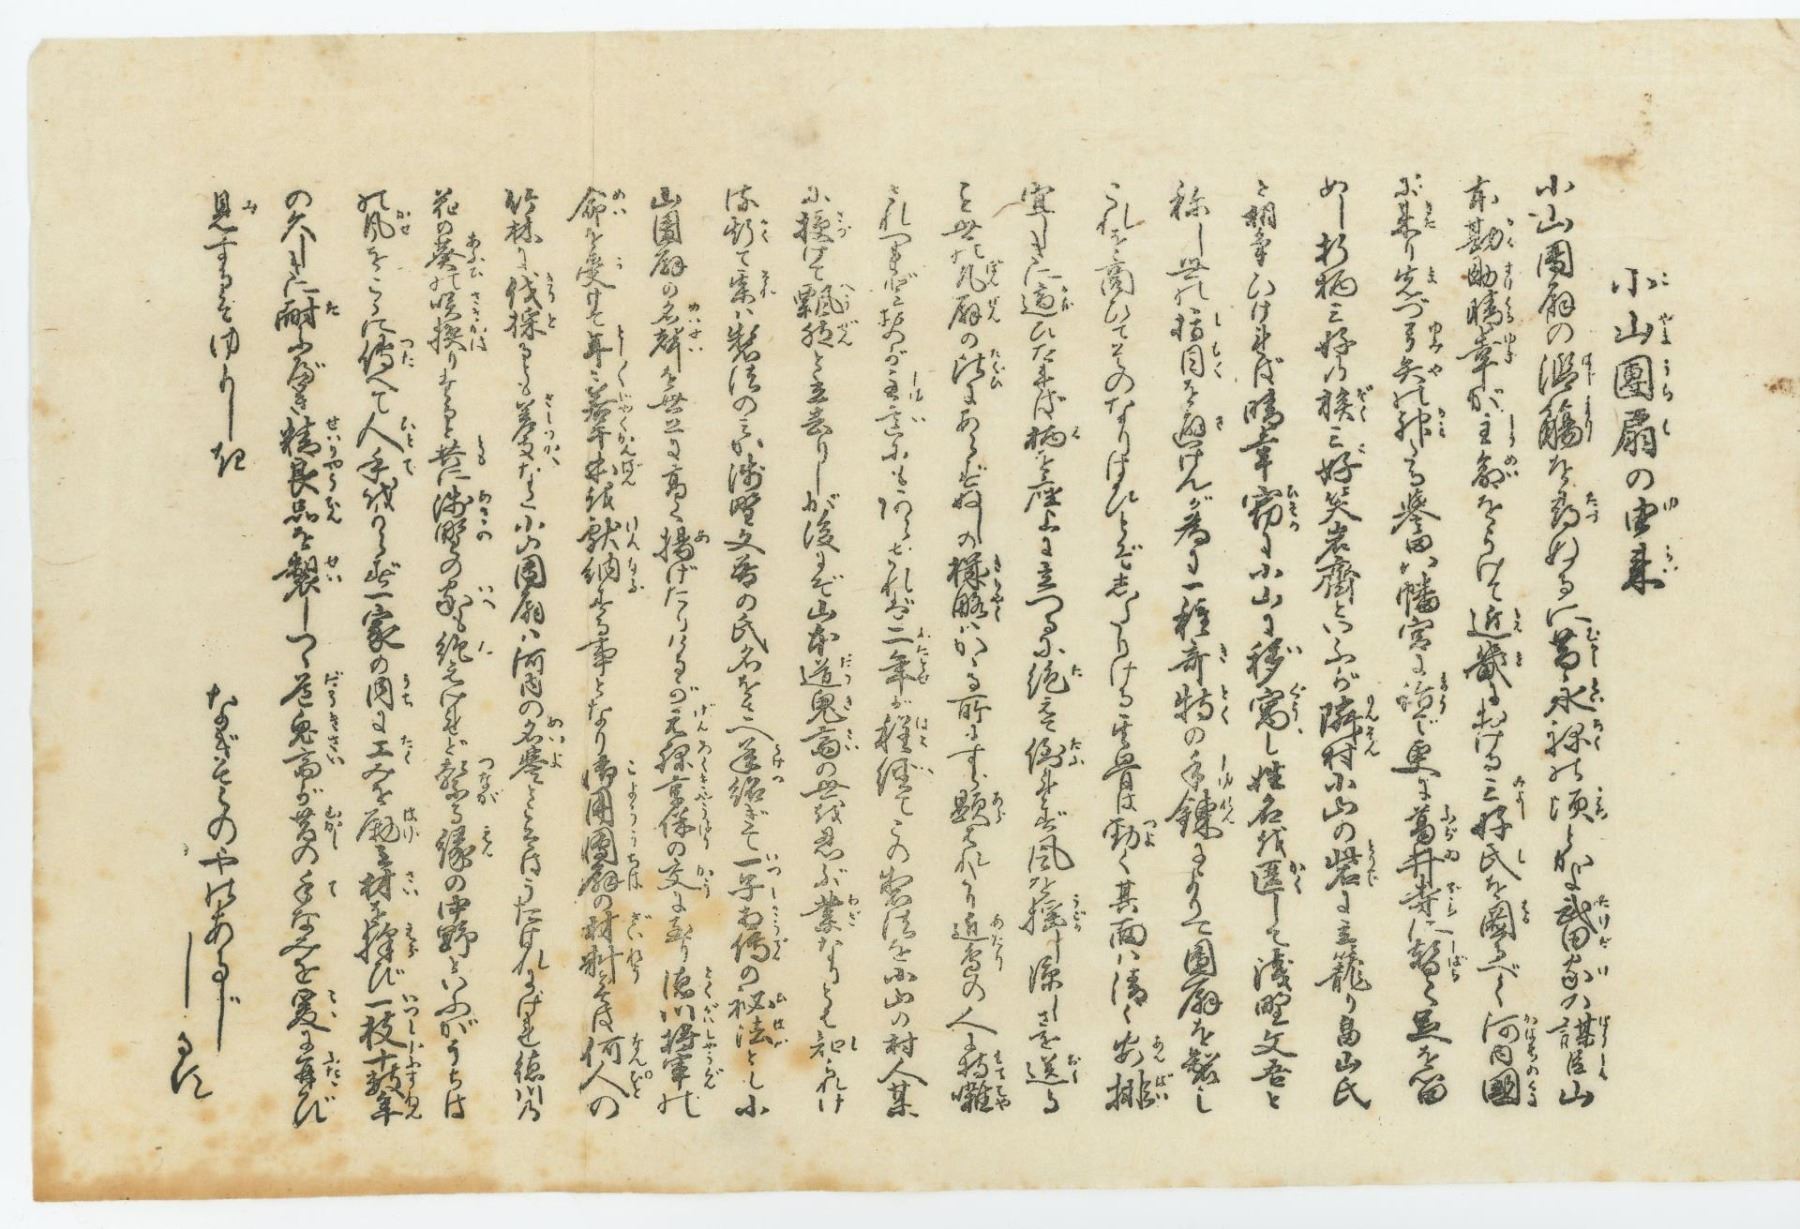 小山團扇の由来
小山團扇の濫觴を尋ぬるに昔し永禄の頃とかよ武田家の謀臣山
本勘助晴幸が主命をうけて近畿における三好氏を図るべく河内國
に来り先づ弓矢の神たる誉田八幡宮に詣で更に葛井寺に暫く足を留
めし折柄三好の族三好笑岩齋といふが隣村小山の砦に立籠り畠山氏
と相争ひければ晴幸窃に小山に移寓し姓名を匿して浅野文吾と
称し世の指目を避けんが為に一種奇特の手錬によりて團扇を製し
これを商ひて其のなりはひとぞしたりける骨は勁く其面は清く安排
宜しきに適ひたれば柄を座上に立つるに絶えて倒れず風を揺し涼しさを送る
こと世の凡扇の比にあらずぬしの機略はかゝる所にすら顕はれたり近郷の人に持囃
されつゝ
に授けて飄然と立去りしが後にぞ山本道鬼斎の世を忍ぶ業なりとも知られけ
る斯て某は製法のみか浅野文吾の氏名をさへ受継ぎて一子相傳の秘法とし小
山團扇の名聲を世上に高く揚げたりけるが元禄享保の交に至り徳川将軍の
命を受けて年々若干本を献納する事となり御用團扇の材料とさへは何人の
竹林に伐採るとも差支なく小山團扇は河内の名誉とこそはうたはれにけれ徳川の
花の葵の咲換りすると共に浅野の家も絶えけれど繋る縁の中野といふがうちは
の風をこゝに傳へて人手をからず一家の内に工みを励み材を擇び一枝十数年
の久しきに耐ふべき精良品を製しつゝ道鬼斎が昔の手なみを爰に再び
見するぞゆゝしき
なぎそのやのあるじ
しるす